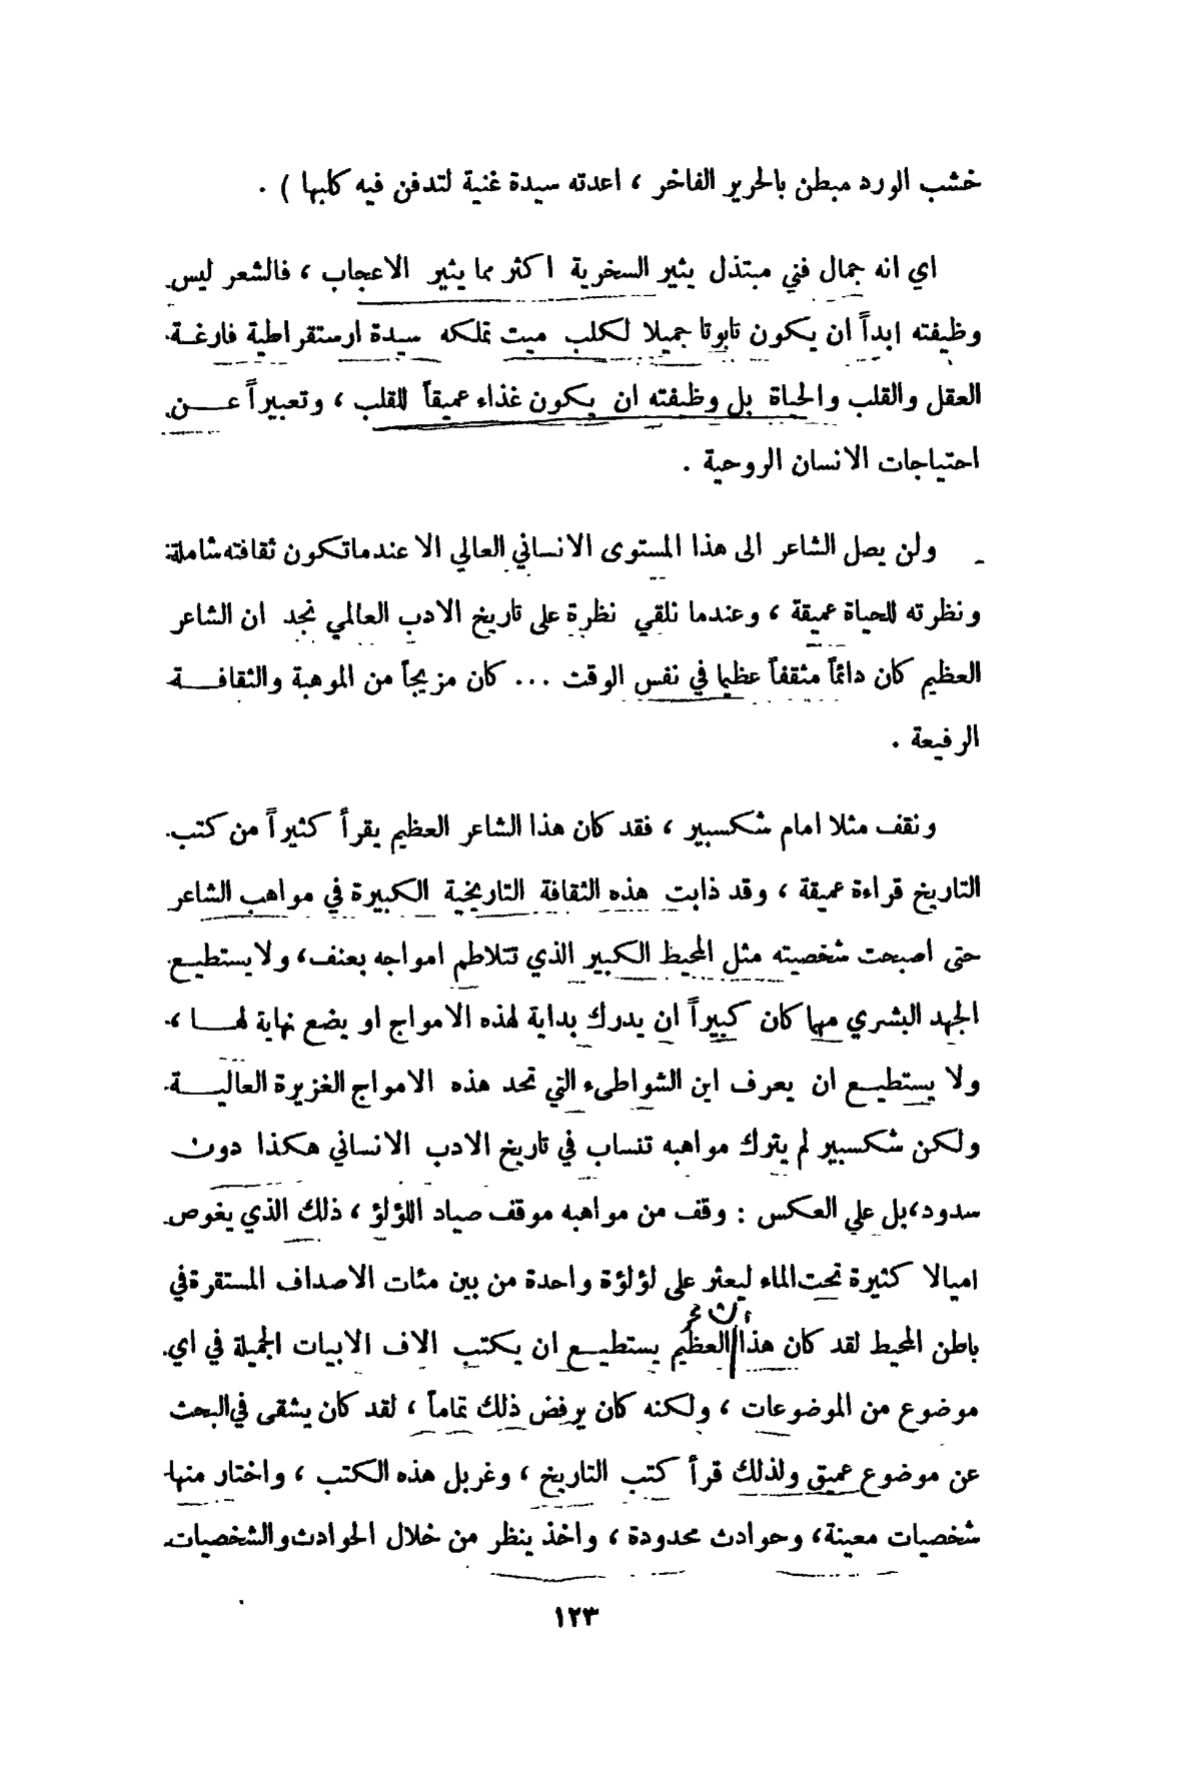 خشب الورد مبطن بالحرير الفاخر ، اعدته سيدة غنية لتدفن فيه كلبها ) .
اي انه جمال فني مبتذل يثير السخرية اكثر مما يثير الاعجاب ، فالشعر ليس
وظيفته ابداً ان يكون تابوتا جميلا لكلب ميت تملكه سيدة ارستقراطية فارغة
العقل والقلب والحياة بل وظيفته ان يكون غذاء عميقاً للقلب ، وتعبيراً عن
احتياجات الانسان الروحية .
ولن يصل الشاعر الى هذا المستوى الانساني العالي الا عندما تكون ثقافته شاملة
ونظرته للحياة عميقة ، وعندما نلقي نظرة على تاريخ الادب العالمي نجد ان الشاعر
العظيم كان دائماً مثقفاً عظيما في نفس الوقت ... كان مزيجاً من الموهبة والثقافة
الرفيعة .
ونقف مثلا امام شكسبير ، فقد كان هذا الشاعر العظيم يقرأ كثيراً من كتب
التاريخ قراءة عميقة ، وقد ذابت هذه الثقافة التاريخية الكبيرة في مواهب الشاعر
حتى اصبحت شخصيته مثل المحيط الكبير الذي تتلاطم امواجه بعنف، ولا يستطيع
الجهد البشري مهما كان كبيراً ان يدرك بداية لهذه الامواج او يضع نهاية لها ،
ولا يستطيع ان يعرف اين الشواطىء التي تحد هذه الامواج الغزيرة العالية
ولكن شكسبير لم يترك مواهبه تنساب في تاريخ الادب الانساني هكذا دون
سدود، بل على العكس : وقف من مواهبه موقف صياد اللؤلؤ ، ذلك الذي يغوص
اميالا كثيرة تحت الماء ليعثر على لؤلؤة واحدة من بين مئات الاصداف المستقرة في
باطن المحيط لقد كان هذا العظيم يستطيع ان يكتب الاف الابيات الجميلة في اي
موضوع من الموضوعات ، ولكنه كان يرفض ذلك تماماً ، لقد كان يشقى في البحث
عن موضوع عميق ولذلك قرأ كتب التاريخ ، وغربل هذه الكتب ، واختار منها
شخصيات معينة، وحوادث محدودة ، واخذ ينظر من خلال الحوادث والشخصيات
١٢٣